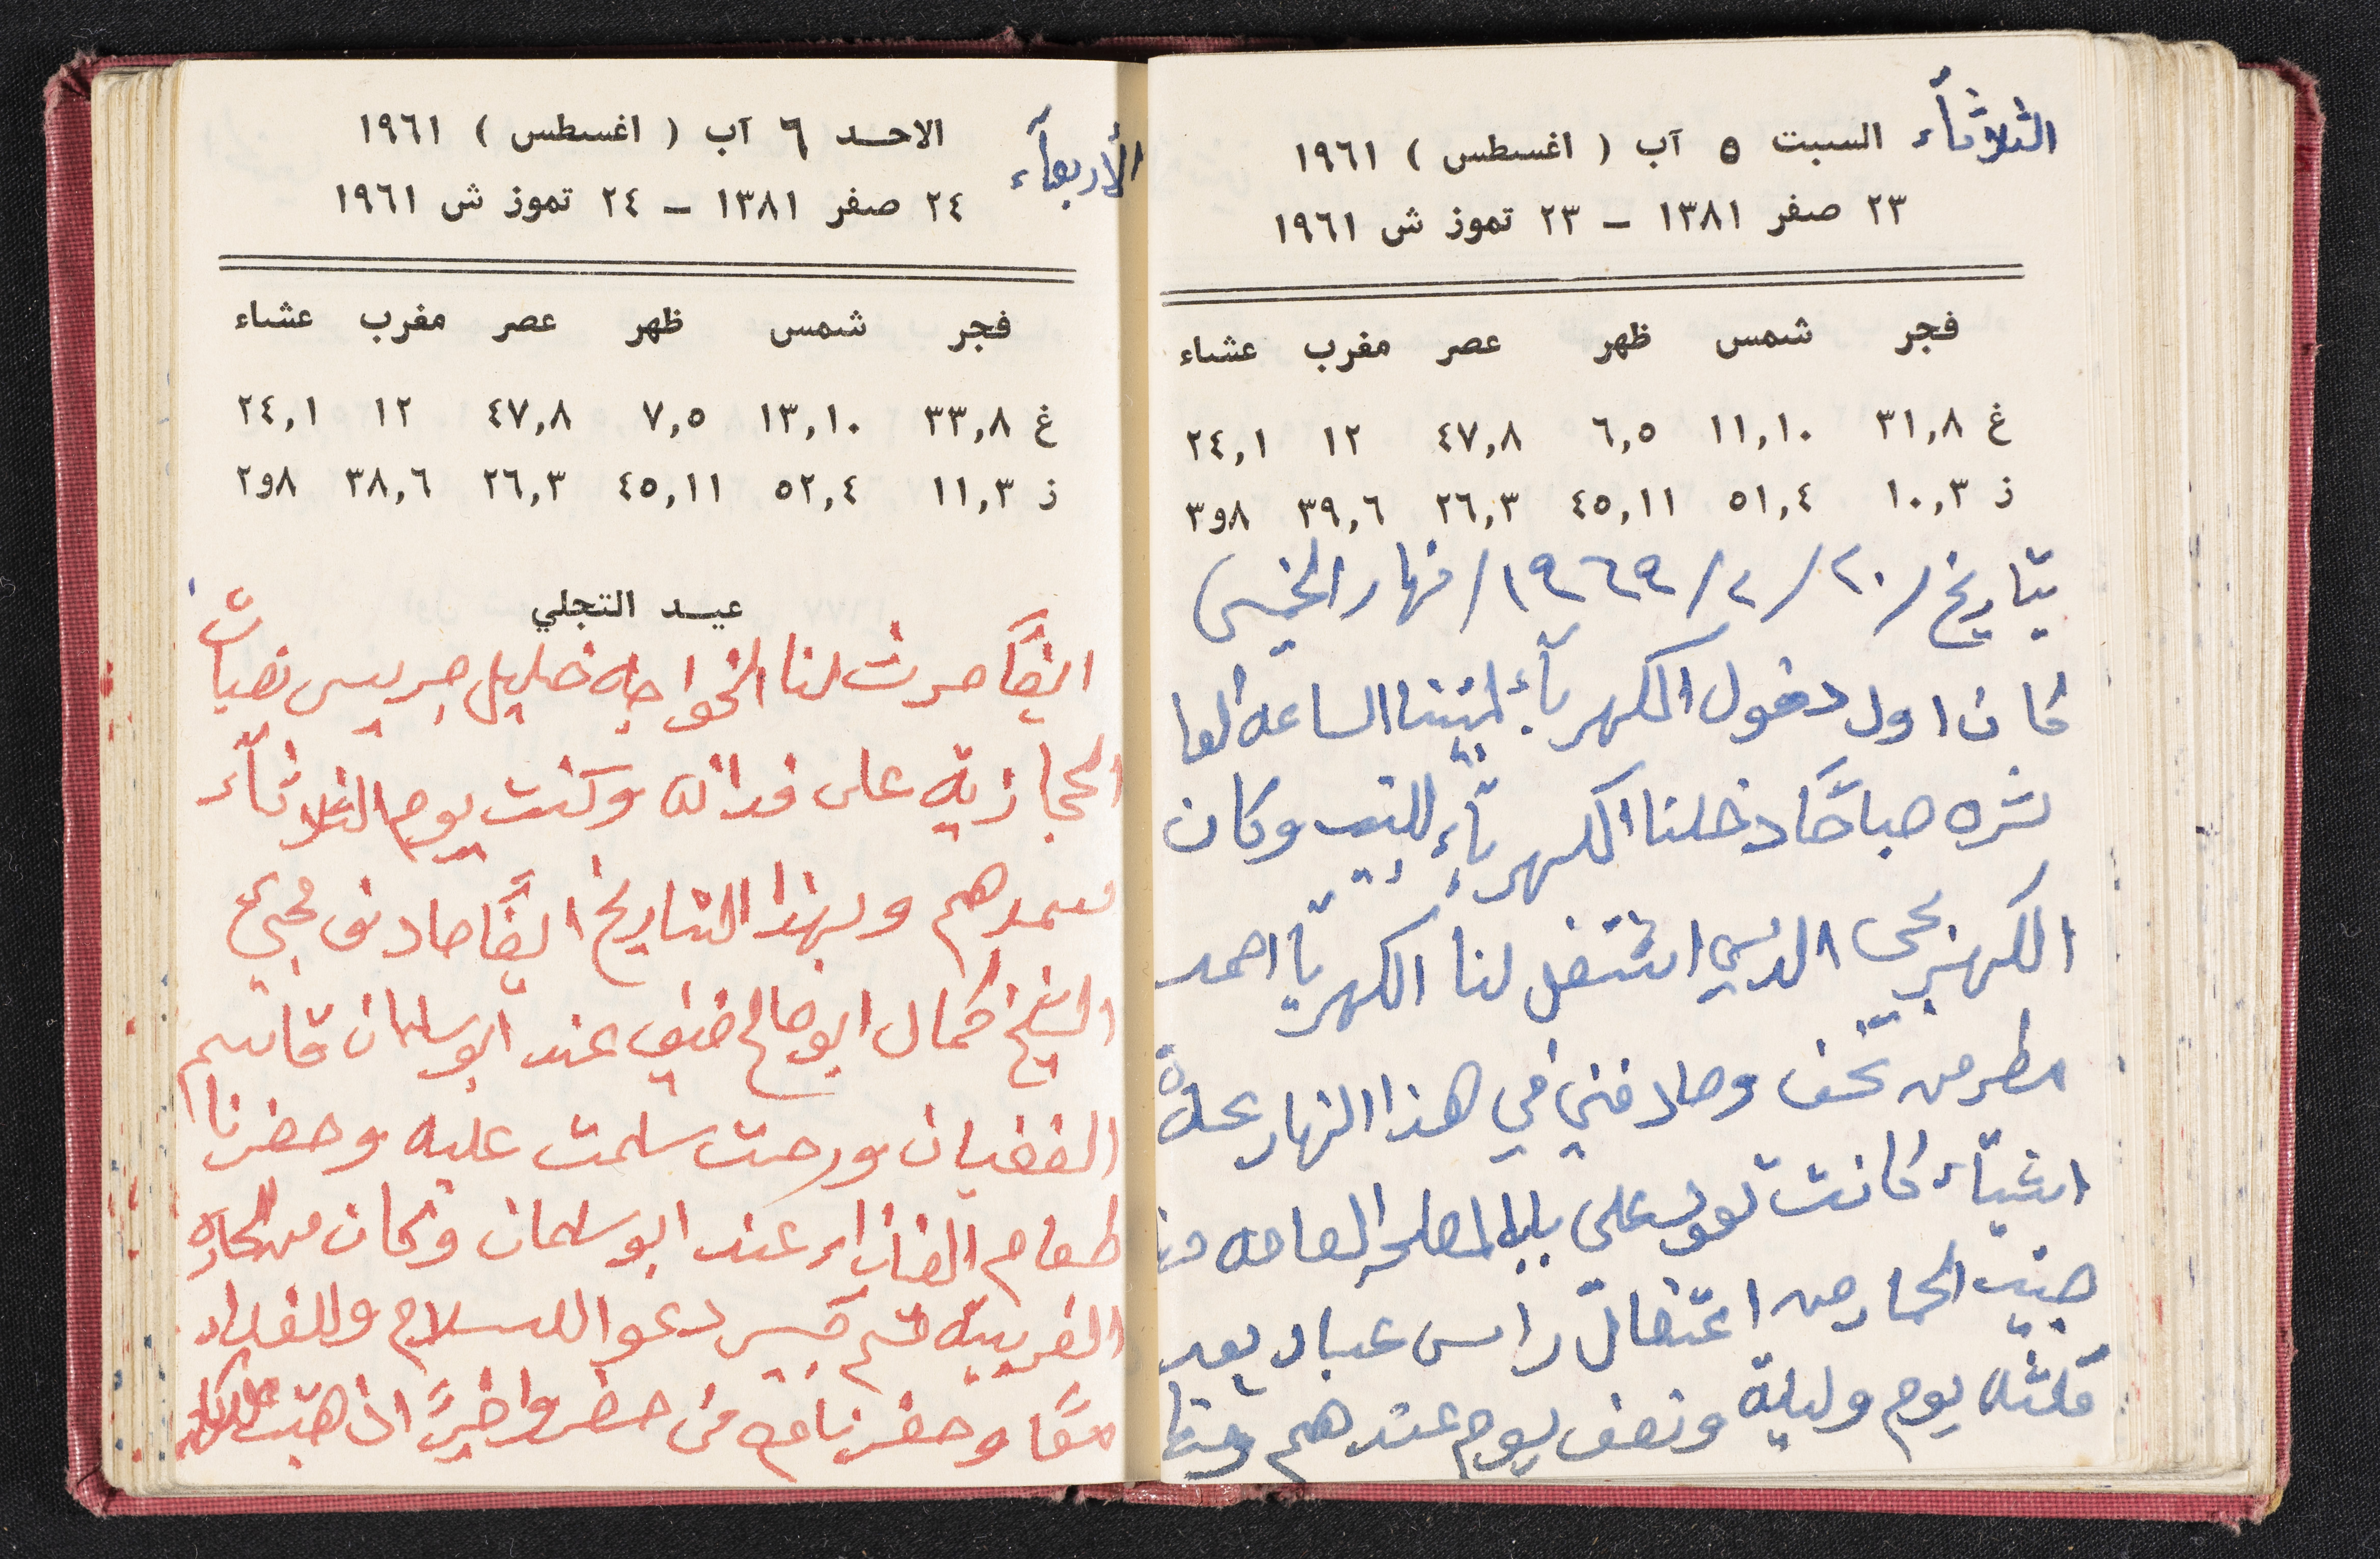 الثلاثآء
السبت ٥ آب ( اغسطس ) ١٩٦١
٢٣ صفر ١٣٨١ – ٢٣ تموز ش ١٩٦١
فجر شمس ظهر عصر مغرب عشاء
غ ٣١,٨ ١١,١٠ ٦,٥ ٤٧,٨ ١٢ ٢٤,١
ز ١٠,٣ ٥١,٤ ٤٥,١١ ٢٦,٣ ٣٩,٦ ٨و٣
بتاريخ / ٢٠ / ٢ / ١٩٦٩ / نهار الخميس
كان اول دخول الكهربآء لبيتنا الساعه العا
شره صباحًا دخلنا الكهربآء للبيت وكان
الكهربجي الذي اشتغل لنا الكهربا احمد
مطر من نحف وصادفني في هذا النهار عدة
اشيآء كانت تعود على بالمصلحه العامه
جبت الحمار من اعتقال راس عباد بعد
مكثه يوم وليلة ونصف يوم عندهم
الأربعآء
الاحد ٦ آب ( اغسطس ) ١٩٦١
٢٤ صفر ١٣٨١ – ٢٤ تموز ش ١٩٦١
فجر شمس ظهر عصر مغرب عشاء
غ ٣٣,٨ ١٣,١٠ ٧,٥ ٤٧,٨ ١٢ ٢٤,١
ز ١١,٣ ٥٢,٤ ٤٥,١١ ٢٦,٣ ٣٨,٦ ٨و٢
عيد التجلي
ايضًا حرث لنا الخواجه خليل جريس نصبات
الحجازية على فدانه وكنت يوم الثلاثآء
وبهذا التاريخ ايضًا صادف مجيئ
الشيخ كمال ابو صالح ضيف عند ابو سلمان قاسم
الغضبان ورحت سلمت عليه وحضرنا
طعام الغذاء عند ابو سلمان وكان من الحاره
الغربية قسم كبير دعو للسلام وللغداء
معًا وحضرنا مع من حضر واخيرًا اذ هبت